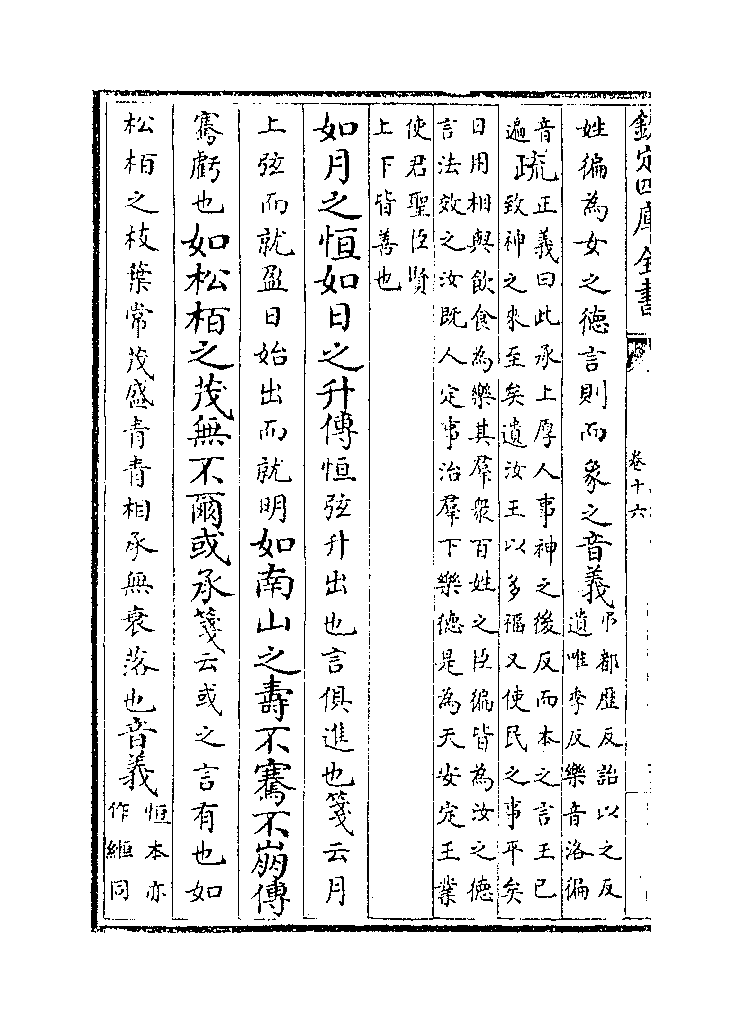 欽定四庫全書
卷十六
姓徧為女之德言則而象之音義
吊都歴反詒以之反
遺唯季反樂音洛徧
音遍疏
正義曰此承上厚人事神之後反而本之言王已
致神之來至矣遺汝王以多福又使民之事平矣
日用相與飲食為樂其羣衆百姓之臣徧皆為汝之德
言法效之汝既人定事治羣下樂德是為天安定王業
使君聖臣賢
上下皆善也
如月之恒如日之升傳恒弦升出也言俱進也箋云月
上弦而就盈日始出而就明如南山之壽不騫不崩傳
騫虧也如松栢之茂無不爾或承箋云或之言有也如
松栢之枝葉常茂盛青青相承無衰落也音義
恒本亦
作縆同